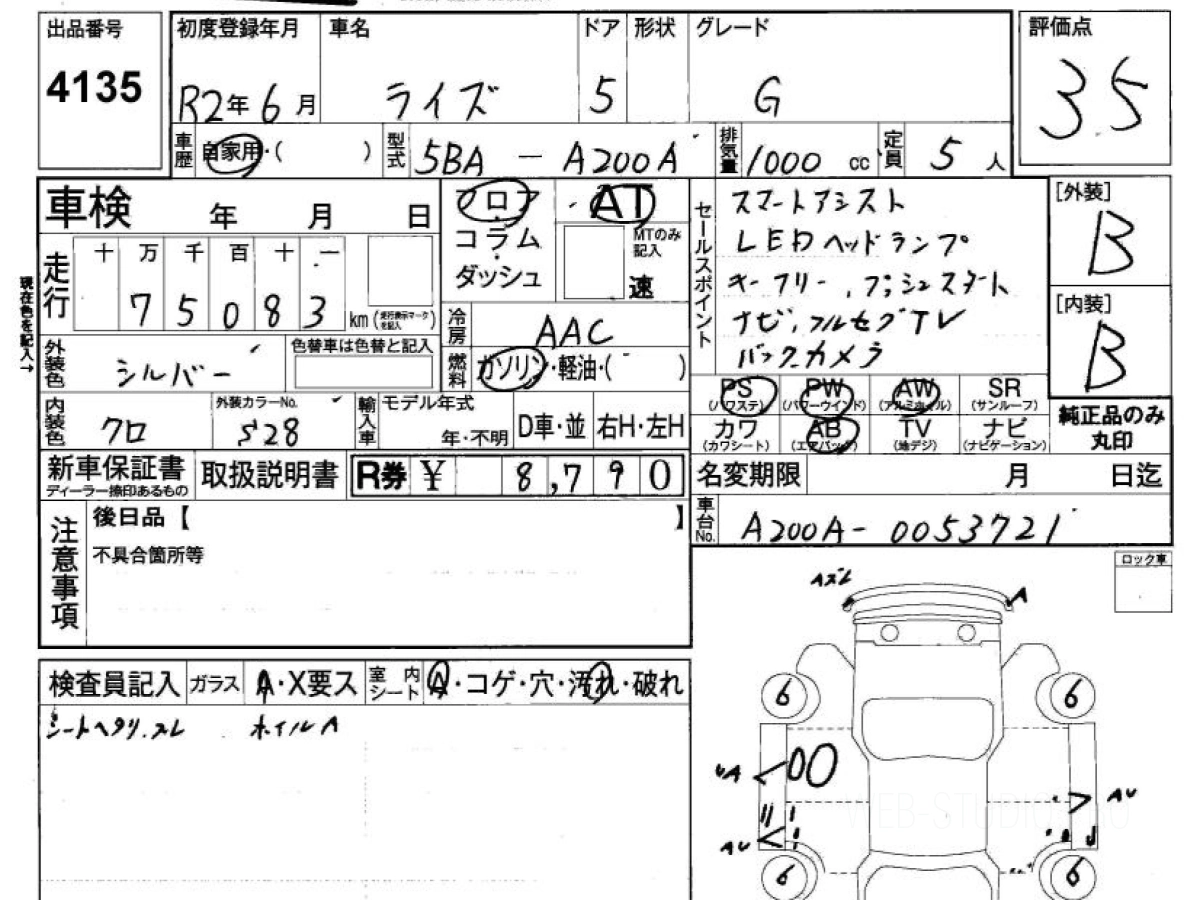 出品番号 初度登録年月 車名 ドア 形状 グレード 評価点
4135 R2年6月 ライズ 5 G 3.5
車歴 自家用・( ) 型式 5BA - A200A 排気量 1000 cc 定員 5 人
車検 年 月 日
フロア
コラム
ダッシュ
AT
MTのみ
記入
速
セールスポイント
スマートアシスト
LEDヘッドランプ
キーフリー、プッシュスタート
ナビ、フルセグTV
バックカメラ
[外装]
B
[内装]
B
現在色を記入→
走行 十 万 千 百 十 一
7 5 0 8 3 km (走行表示マークを記入)
冷房 AAC
燃料 ガソリン・軽油・( )
外装色 シルバー 色替車は色替と記入
内装色 クロ 外装カラーNo. S28 輸入車 モデル年式 年・不明 D車・並 右H・左H
PS (パワステ) PW (パワーウインド) AW (アルミホイル) SR (サンルーフ)
カワ (カワシート) AB (エアバック) TV (地デジ) ナビ (ナビゲーション)
純正品のみ
丸印
新車保証書 ディーラー捺印あるもの 取扱説明書 R券 ¥ 8,790
名変期限 月 日迄
車台No. A200A-0053721
注意事項
後日品【 】
不具合箇所等
ロック車
検査員記入 ガラス A・X要ス 室内シート A・コゲ・穴・汚れ・破れ
シートヘタリ、スレ ホイルA
Aズレ A
6 6
AU
AU
6 6
WEB-STUDIO.PRO